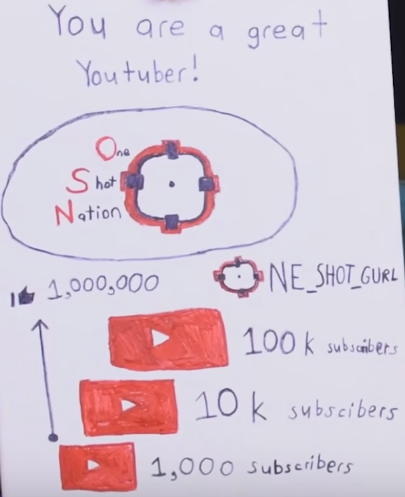 You are a great
Youtuber!
One
Shot
Nation
1,000,000
NE_SHOT_GURL
100k subscribers
10k subscibers
1,000 subscribers